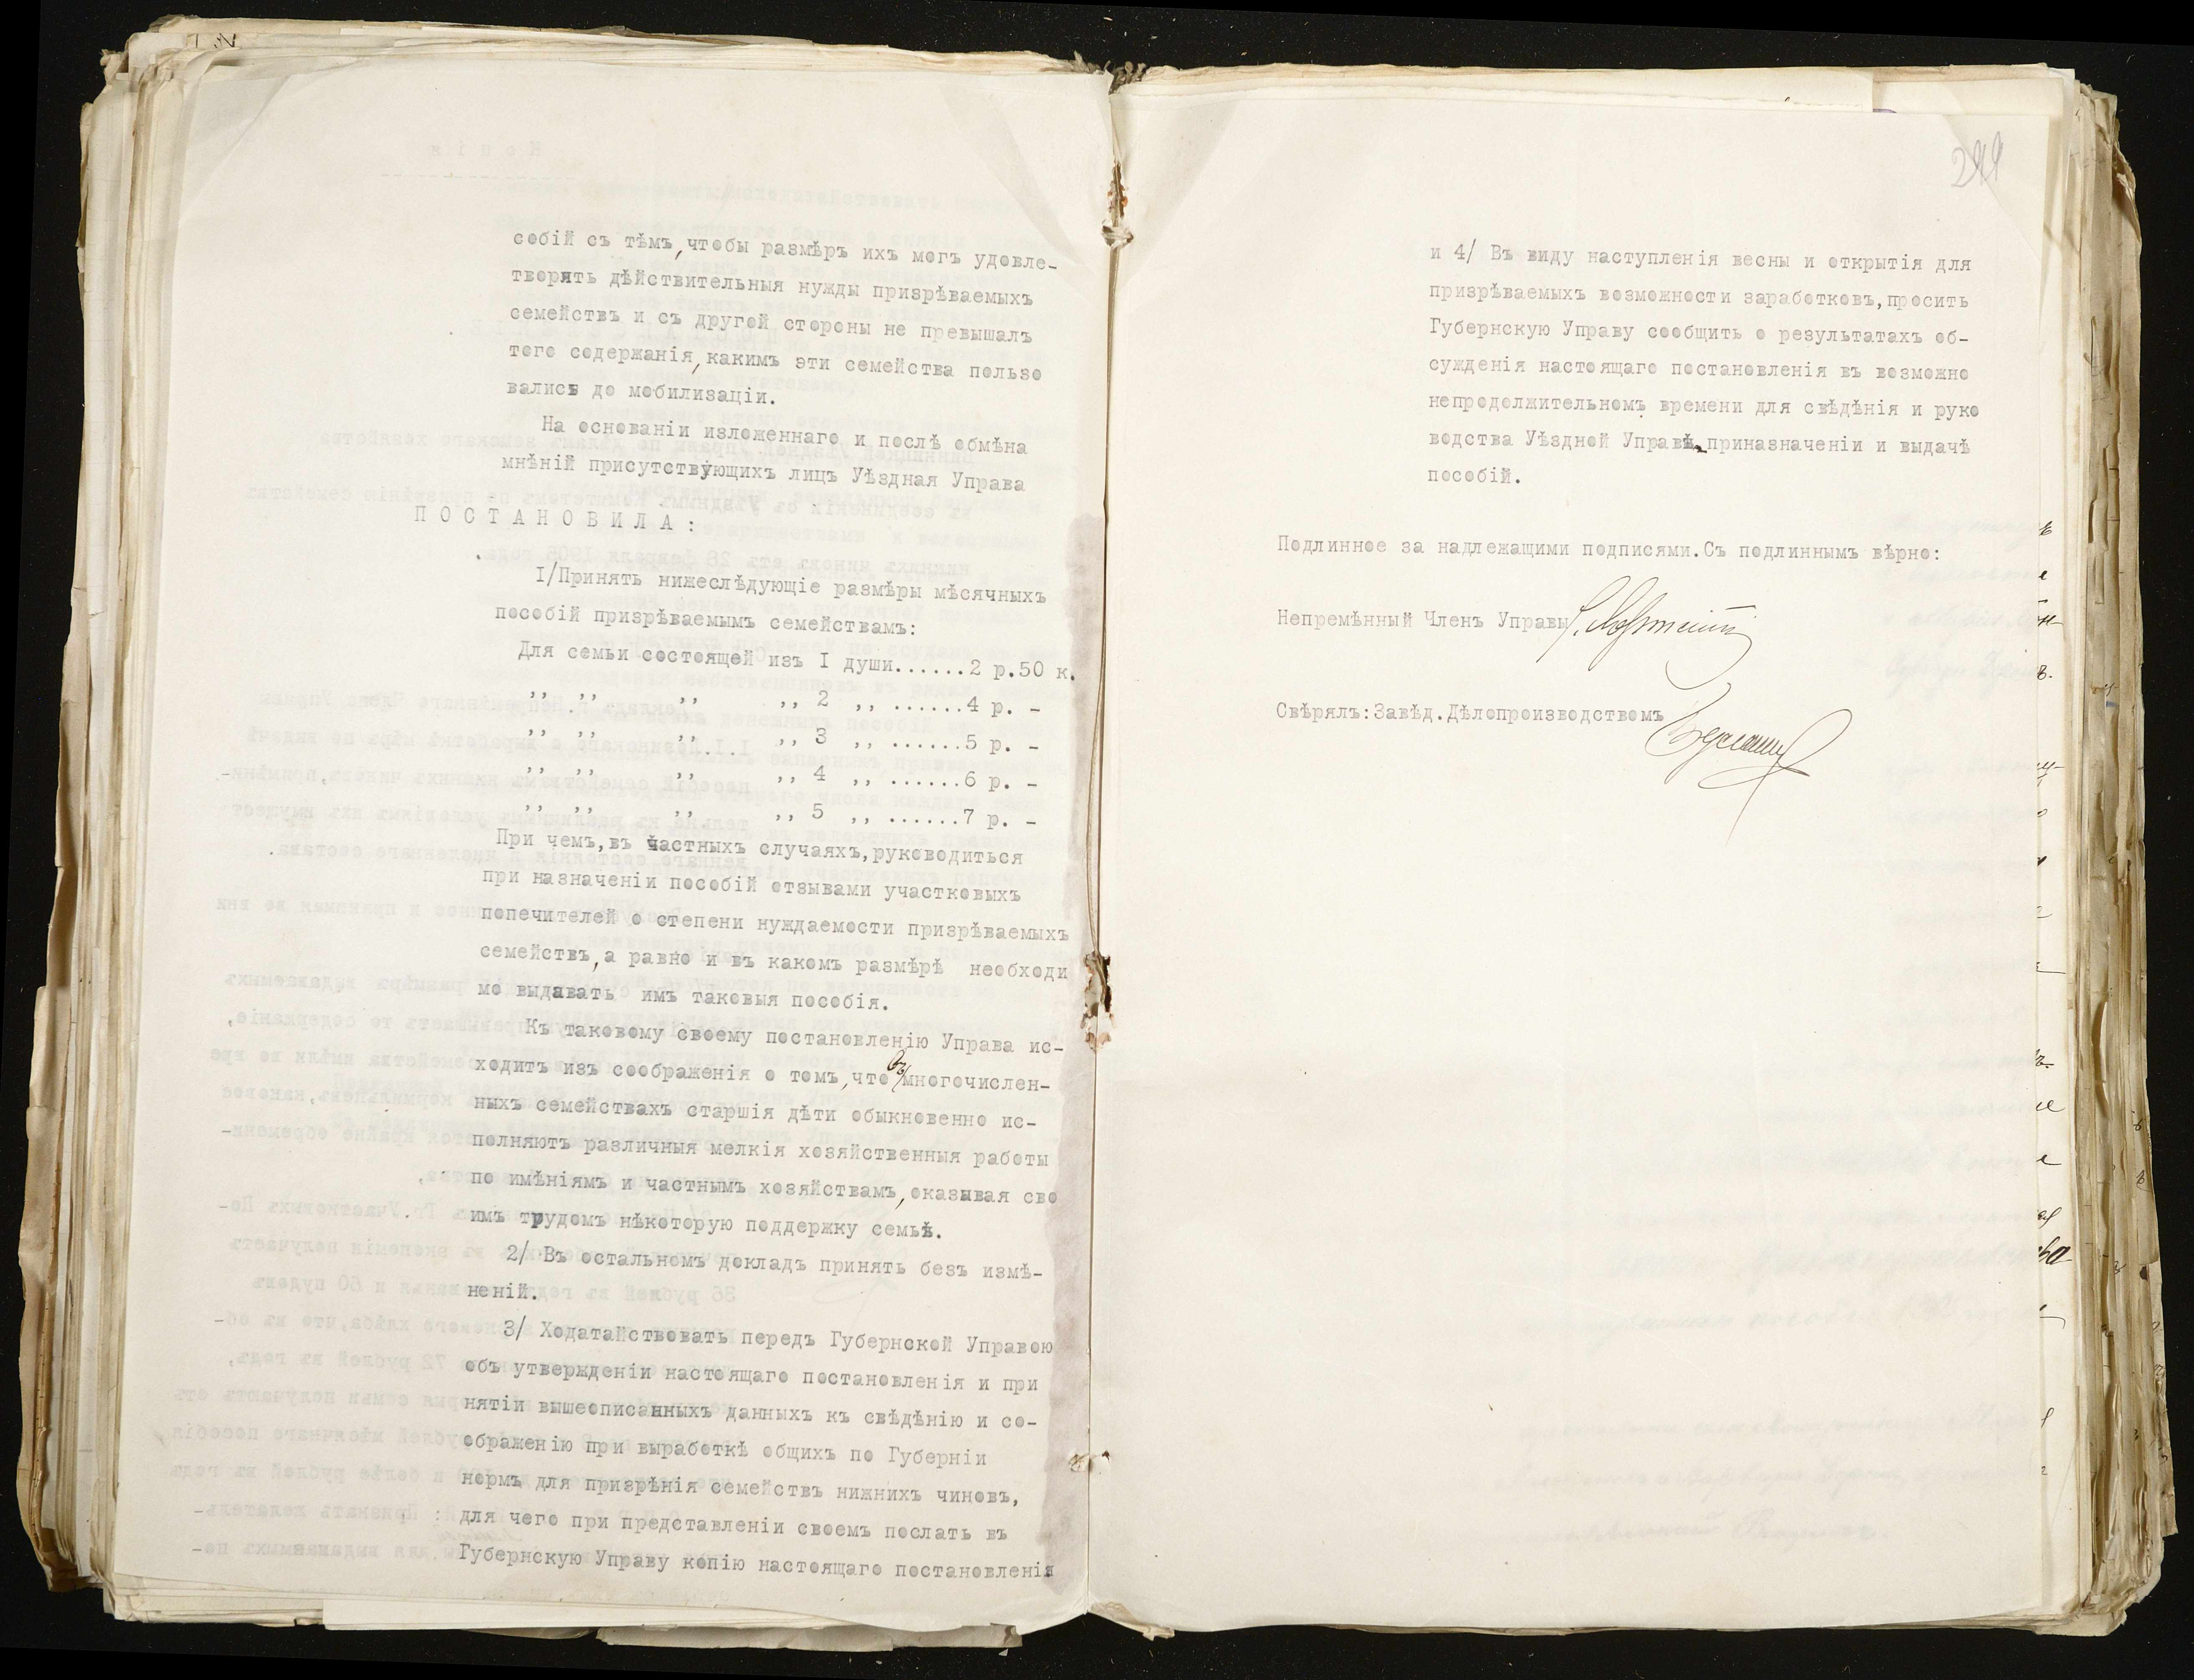 собій съ тѣмъ, чтобы размѣръ ихъ могъ удовле-
творять дѣйствительныя нужды призрѣваемыхъ
семействъ и съ другой стороны не превышалъ
того содержанія, какимъ эти семейства пользо
вались до мобилизаціи.
На основаніи изложеннаго и послѣ обмѣна
мнѣній присутствующихъ лицъ Уѣздная Управа
ПОСТАНОВИЛА:
I/Принять нижеслѣдующіе размѣры мѣсячныхъ
пособій призрѣваемымъ семействамъ:
Для семьи состоящей изъ I души......2 р.50 к.
,, ,, ,, ,, 2 ,, ......4 р. -
,, ,, ,, ,, 3 ,, ......5 р. -
,, ,, ,, ,, 4 ,, ......6 р. -
,, ,, ,, ,, 5 ,, ......7 р. -
При чемъ, въ частныхъ случаяхъ, руководиться
при назначеніи пособій отзывами участковыхъ
попечителей о степени нуждаемости призрѣваемыхъ
семействъ, а равно и въ какомъ размѣрѣ необходи
мо выдавать имъ таковыя пособія.
Къ таковому своему постановленію Управа ис-
ходитъ изъ соображенія о томъ, что въ многочислен-
ныхъ семействахъ старшія дѣти обыкновенно ис-
полняютъ различныя мелкія хозяйственныя работы
по имѣніямъ и частнымъ хозяйствамъ, оказывая сво
имъ трудомъ нѣкоторую поддержку семьѣ.
2/ Въ остальномъ докладъ принять безъ измѣ-
неній.
3/ Ходатайствовать передъ Губернской Управою
объ утвержденіи настоящаго постановленія и при
нятіи вышеописанныхъ данныхъ къ свѣдѣнію и со-
ображенію при выработкѣ общихъ по Губерніи
нормъ для призрѣнія семействъ нижнихъ чиновъ,
для чего при представленіи своемъ послать въ
Губернскую Управу копію настоящаго постановленія
и 4/ Въ виду наступленія весны и открытія для
призрѣваемыхъ возможности заработковъ, просить
Губернскую Управу сообщить о результатахъ об-
сужденія настоящаго постановленія въ возможно
непродолжительномъ времени для свѣдѣнія и руко
водства Уѣздной Управѣ приназначеніи и выдачѣ
пособій.
Подлинное за надлежащими подписями. Съ подлиннымъ вѣрно:
Непремѣнный Членъ Управы
Свѣрялъ: Завѣд. Дѣлопроизводствомъ